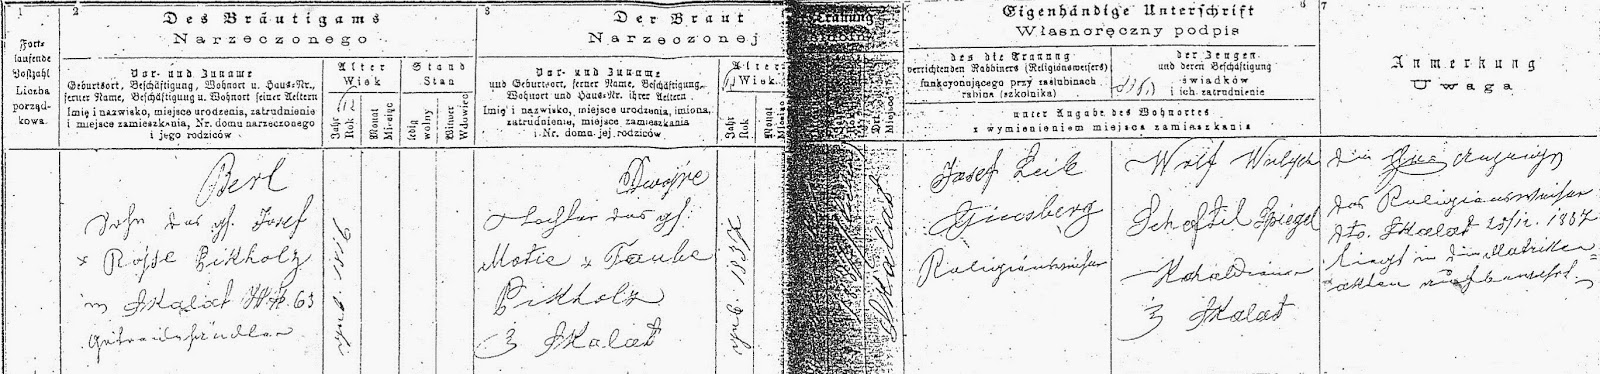 1
Fort-
laufende
Postzahl
Liczba
porząd-
kowa.
2
Des Bräutigams
Narzeczonego
Vor- und Zuname
Geburtsort, Beschäftigung, Wohnort u. Haus-Nr.,
ferner Name, Beschäftigung u. Wohnort seiner Aeltern
Imię i nazwisko, miejsce urodzenia, zatrudnienie
i miejsce zamieszkania, Nr. domu narzeczonego
i jego rodziców.
Alter
Wiek
Jahr
Rok
Monat
Miesiąc
Stand
Stan
ledig
wolny
Witwer
Wdowiec
3
Der Braut
Narzeczonej
Vor- und Zuname
und Geburtsort, ferner Name, Beschäftigung,
Wohnort und Haus-Nr. ihrer Aeltern
Imię i nazwisko, miejsce urodzenia, imiona,
zatrudnienie, miejsce zamieszkania
i Nr. domu jej rodziców.
Alter
Wiek
Jahr
Rok
Monat
Miesiąc
Trauung
Miejsce
Eigenhändige Unterschrift
Własnoręczny podpis
6
des die Trauung
verrichtenden Rabbiners (Religionsweisers)
funkcyonującego przy zaślubinach
rabina (szkolnika)
der Zeugen
und deren Beschäftigung
świadków
i ich zatrudnienie
unter Angabe des Wohnortes
z wymienieniem miejsca zamieszkania
7
Anmerkung
Uwaga
Berl
Sohn des gh. Josef
x Rosse Pikholz
in Skalat Nr. 63
Getreidehändler
geb. 1856
Dwojre
Tochter des gh.
Motie x Taube
Pikholz
z Skalat
geb. 1857
Skalat
Josef Leib
Ginsberg
Religionsweiser
Wolf
Scheftil Spiegel
z Skalat
des Religionsweisers
dto. Skalat 25/12. 1887
liegt in den Matriken-
akten aufbewahrt.